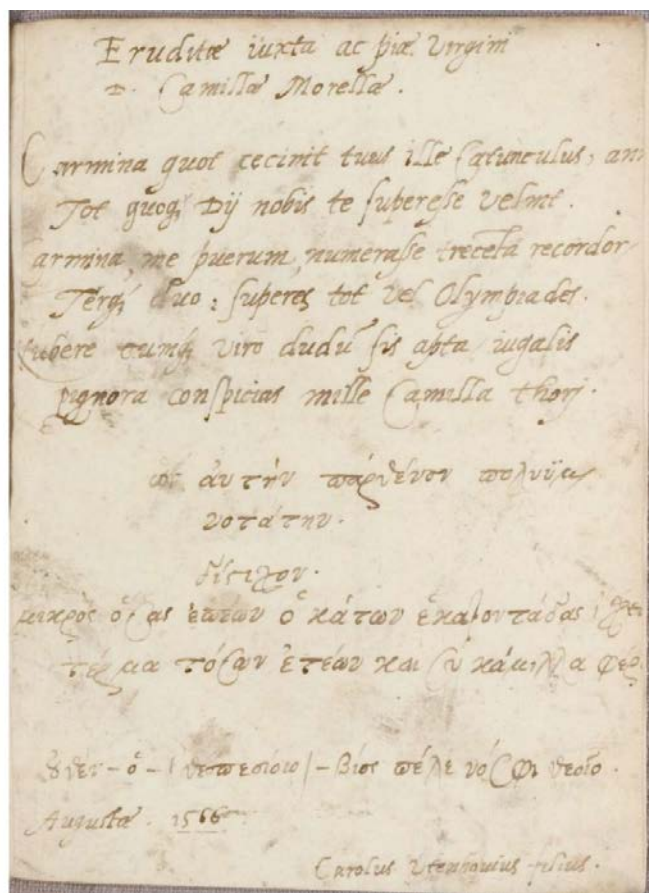 Eruditæ iuxta ac piæ Virgini
D. Camillæ Morellæ.
Carmina quot cecinit tuus ille Catunculus, ann
Tot quoq; Dij nobis te superesse velint.
armina, me puerum, numerasse trecēta recordor,
Terq; duo: superes tot vel Olympiades.
Nubere cumq; viro dudū sis apta, iugalis
pignora conspicias mille Camilla thorj.
αὐτὴν παρθένον πολυϋμ
νοτάτην.
δίστιχον.
μικρὸς ὅσας ἐπέων ὁ κάτων ἑκατοντάδας
τέρμα τόσων ἐτέων καὶ σὺ κάμιλλα φέρ
οὐδέν - ὁ - θεσπεσίοιο - βίος πέλε νόσφι θεοῖο.
Augustæ. 1566
Carolus Utenhovius filius.